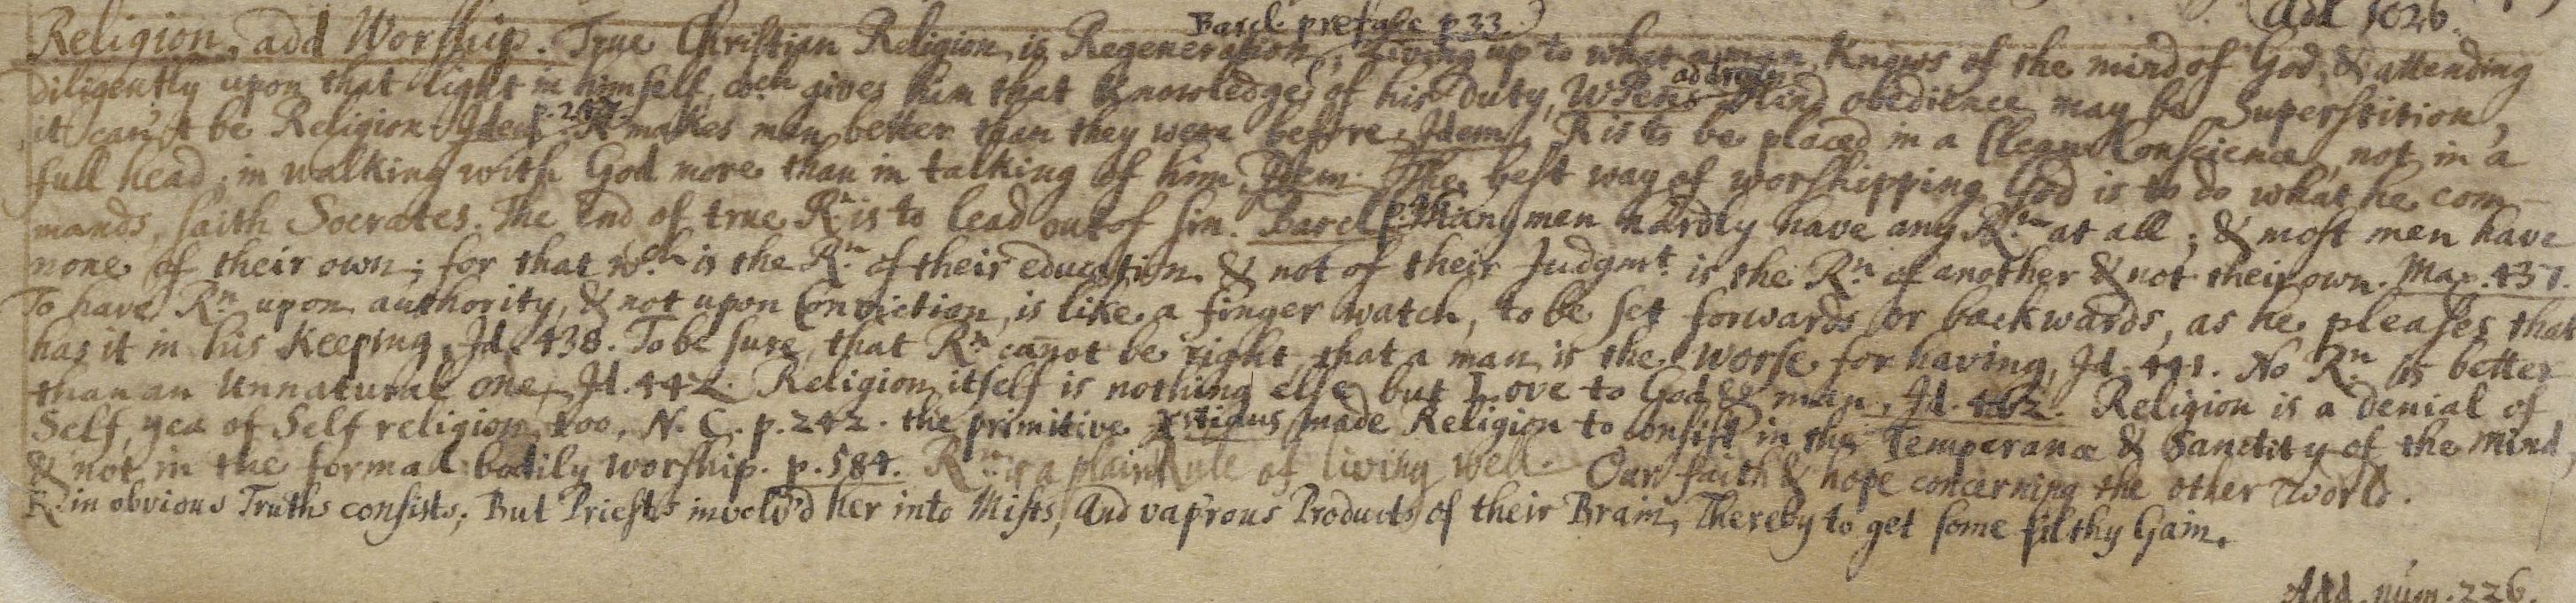 Barcl. preface p 33.) (add 1026.
Religion, add Worship. True Christian Religion is Regeneration, Living up to what a man Knows of the mind of God, & attending
diligently upon that light in himself, wch. gives him that Knowledge of his Duty, WPens address Blind obedience may be Superstition,
it can't be Religion Idem p. 247. R makes men better than they were before. Idem. R is to be placed in a Clean Conscience, not in a
full head; in walking with God more than in talking of him, Idem. The best way of worshipping God is to do what he com-
mands, saith Socrates. The End of true R.n is to lead out of sin. Barcl. p. Many men hardly have any R.n at all; & most men have
none of their own; for that wch. is the R.n of their education & not of their Judgmt. is the R.n of another & not their own. Max. 437.
To have R.n upon authority, & not upon Conviction, is like a finger watch, to be set forwards or backwards, as he pleases that
has it in his Keeping, Id. 438. To be sure, that R.n canot be right, that a man is the worse for having, Id. 441. No R.n is better
than an Unnatural one, Id. 442. Religion itself is nothing else but Love to God & man, Id. Religion is a denial of
Self, yea of Self religion too, N. C. p. 242. the primitive Xstians made Religion to consist in the Temperance & Sanctity of the Mind,
& not in the formal bodily worship. p. 584. R.n is a plain Rule of living well. Our faith & hope concerning the other World.
R. in obvious Truths consists; But Priests involv'd her into Mists, And vap'rous Products of their Brain, Thereby to get some filthy Gain.
Add num. 226.